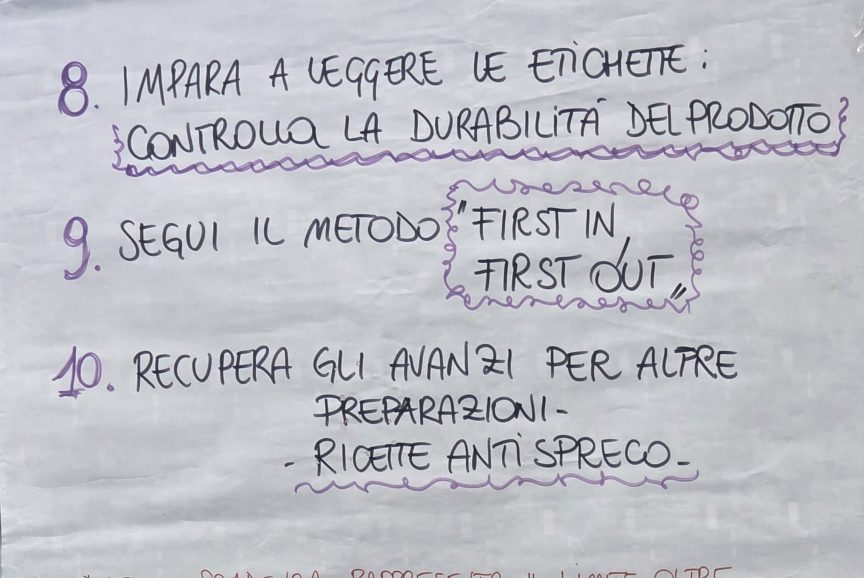 8. IMPARA A LEGGERE LE ETICHETTE:
CONTROLLA LA DURABILITÀ DEL PRODOTTO
9. SEGUI IL METODO "FIRST IN,
FIRST OUT"
10. RECUPERA GLI AVANZI PER ALTRE
PREPARAZIONI-
- RICETTE ANTISPRECO-
IL LIMITE OLTRE